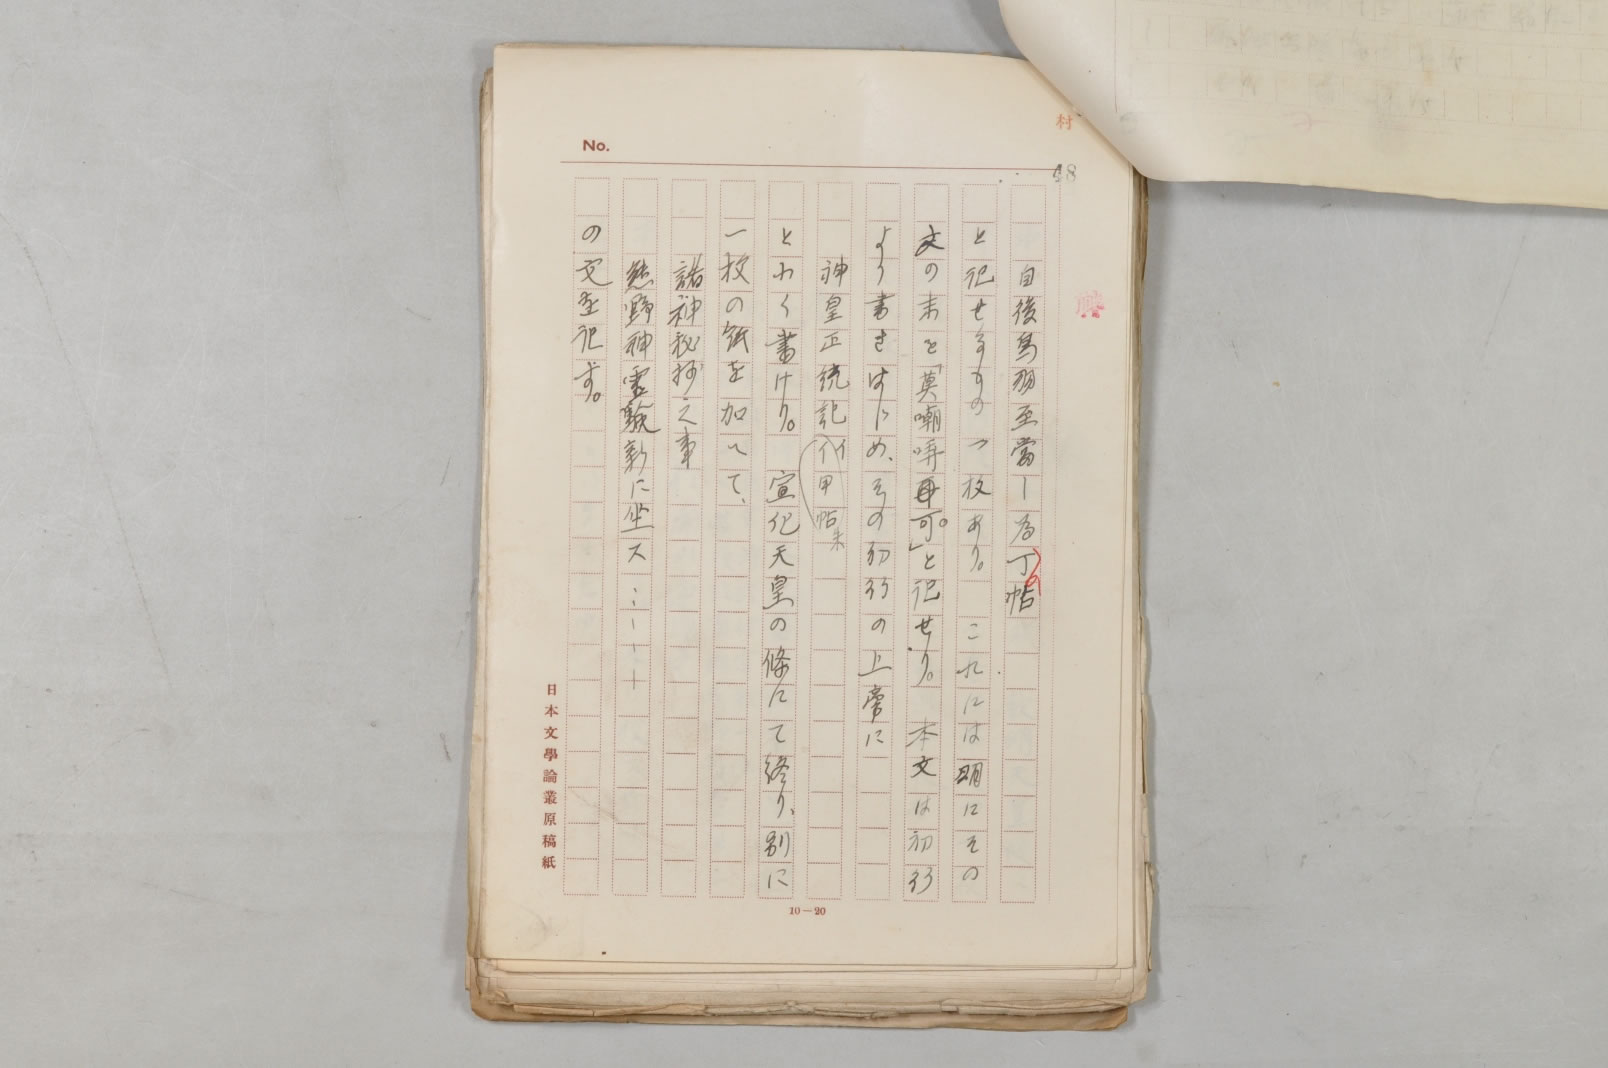 No.
村
48
自後鳥羽至當ー為丁帖
と記せるもの一枚あり。 これには明にその
文の末と「莫嘲哢再可。」と記せり。 本文は初行
より書きはじめ、その初行の上旁に
神皇正統記 イ 甲帖末
とわく書けり。 宣化天皇の條にて終り、別に
一枚の紙を加へて、
諸神秘抄之事
熊野神霊験新に坐ス
の文を記す。
日本文學論叢原稿紙
10—20